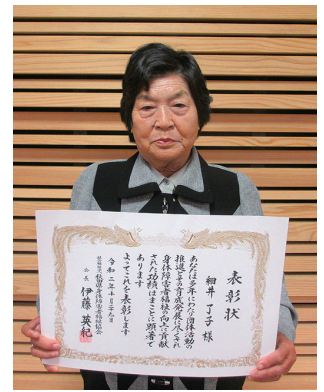 表彰状
細井 了子 様
あなたは多年にわたり団体活動の
推進とその育成発展に尽くされ
身体障害者福祉の向上に貢献
された功績はまことに顕著で
あります
よってこれを表彰します
令和二年十月二十九日
秋田県身体障害者福祉協会
会長 伊藤 英紀